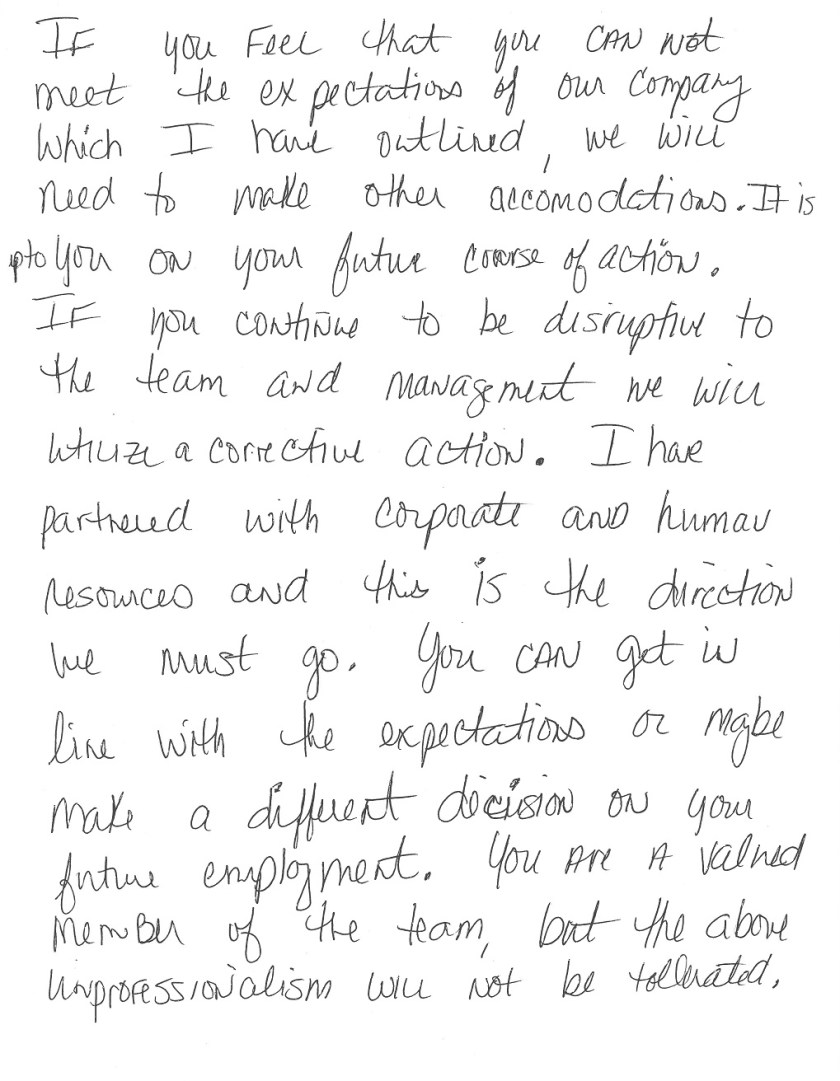 IF you Feel that you CAN not
meet the expectations of our company
which I have outlined, we will
need to make other accomodations. It is
upto you on your future course of action.
IF you continue to be disruptive to
the team and management we will
utilize a corrective action. I have
partnered with corporate and human
resources and this is the direction
we must go. You CAN get in
line with the expectations or maybe
make a different decision on your
future employment. You Are A valued
member of the team, but the above
unprofessionalism will not be tollerated.